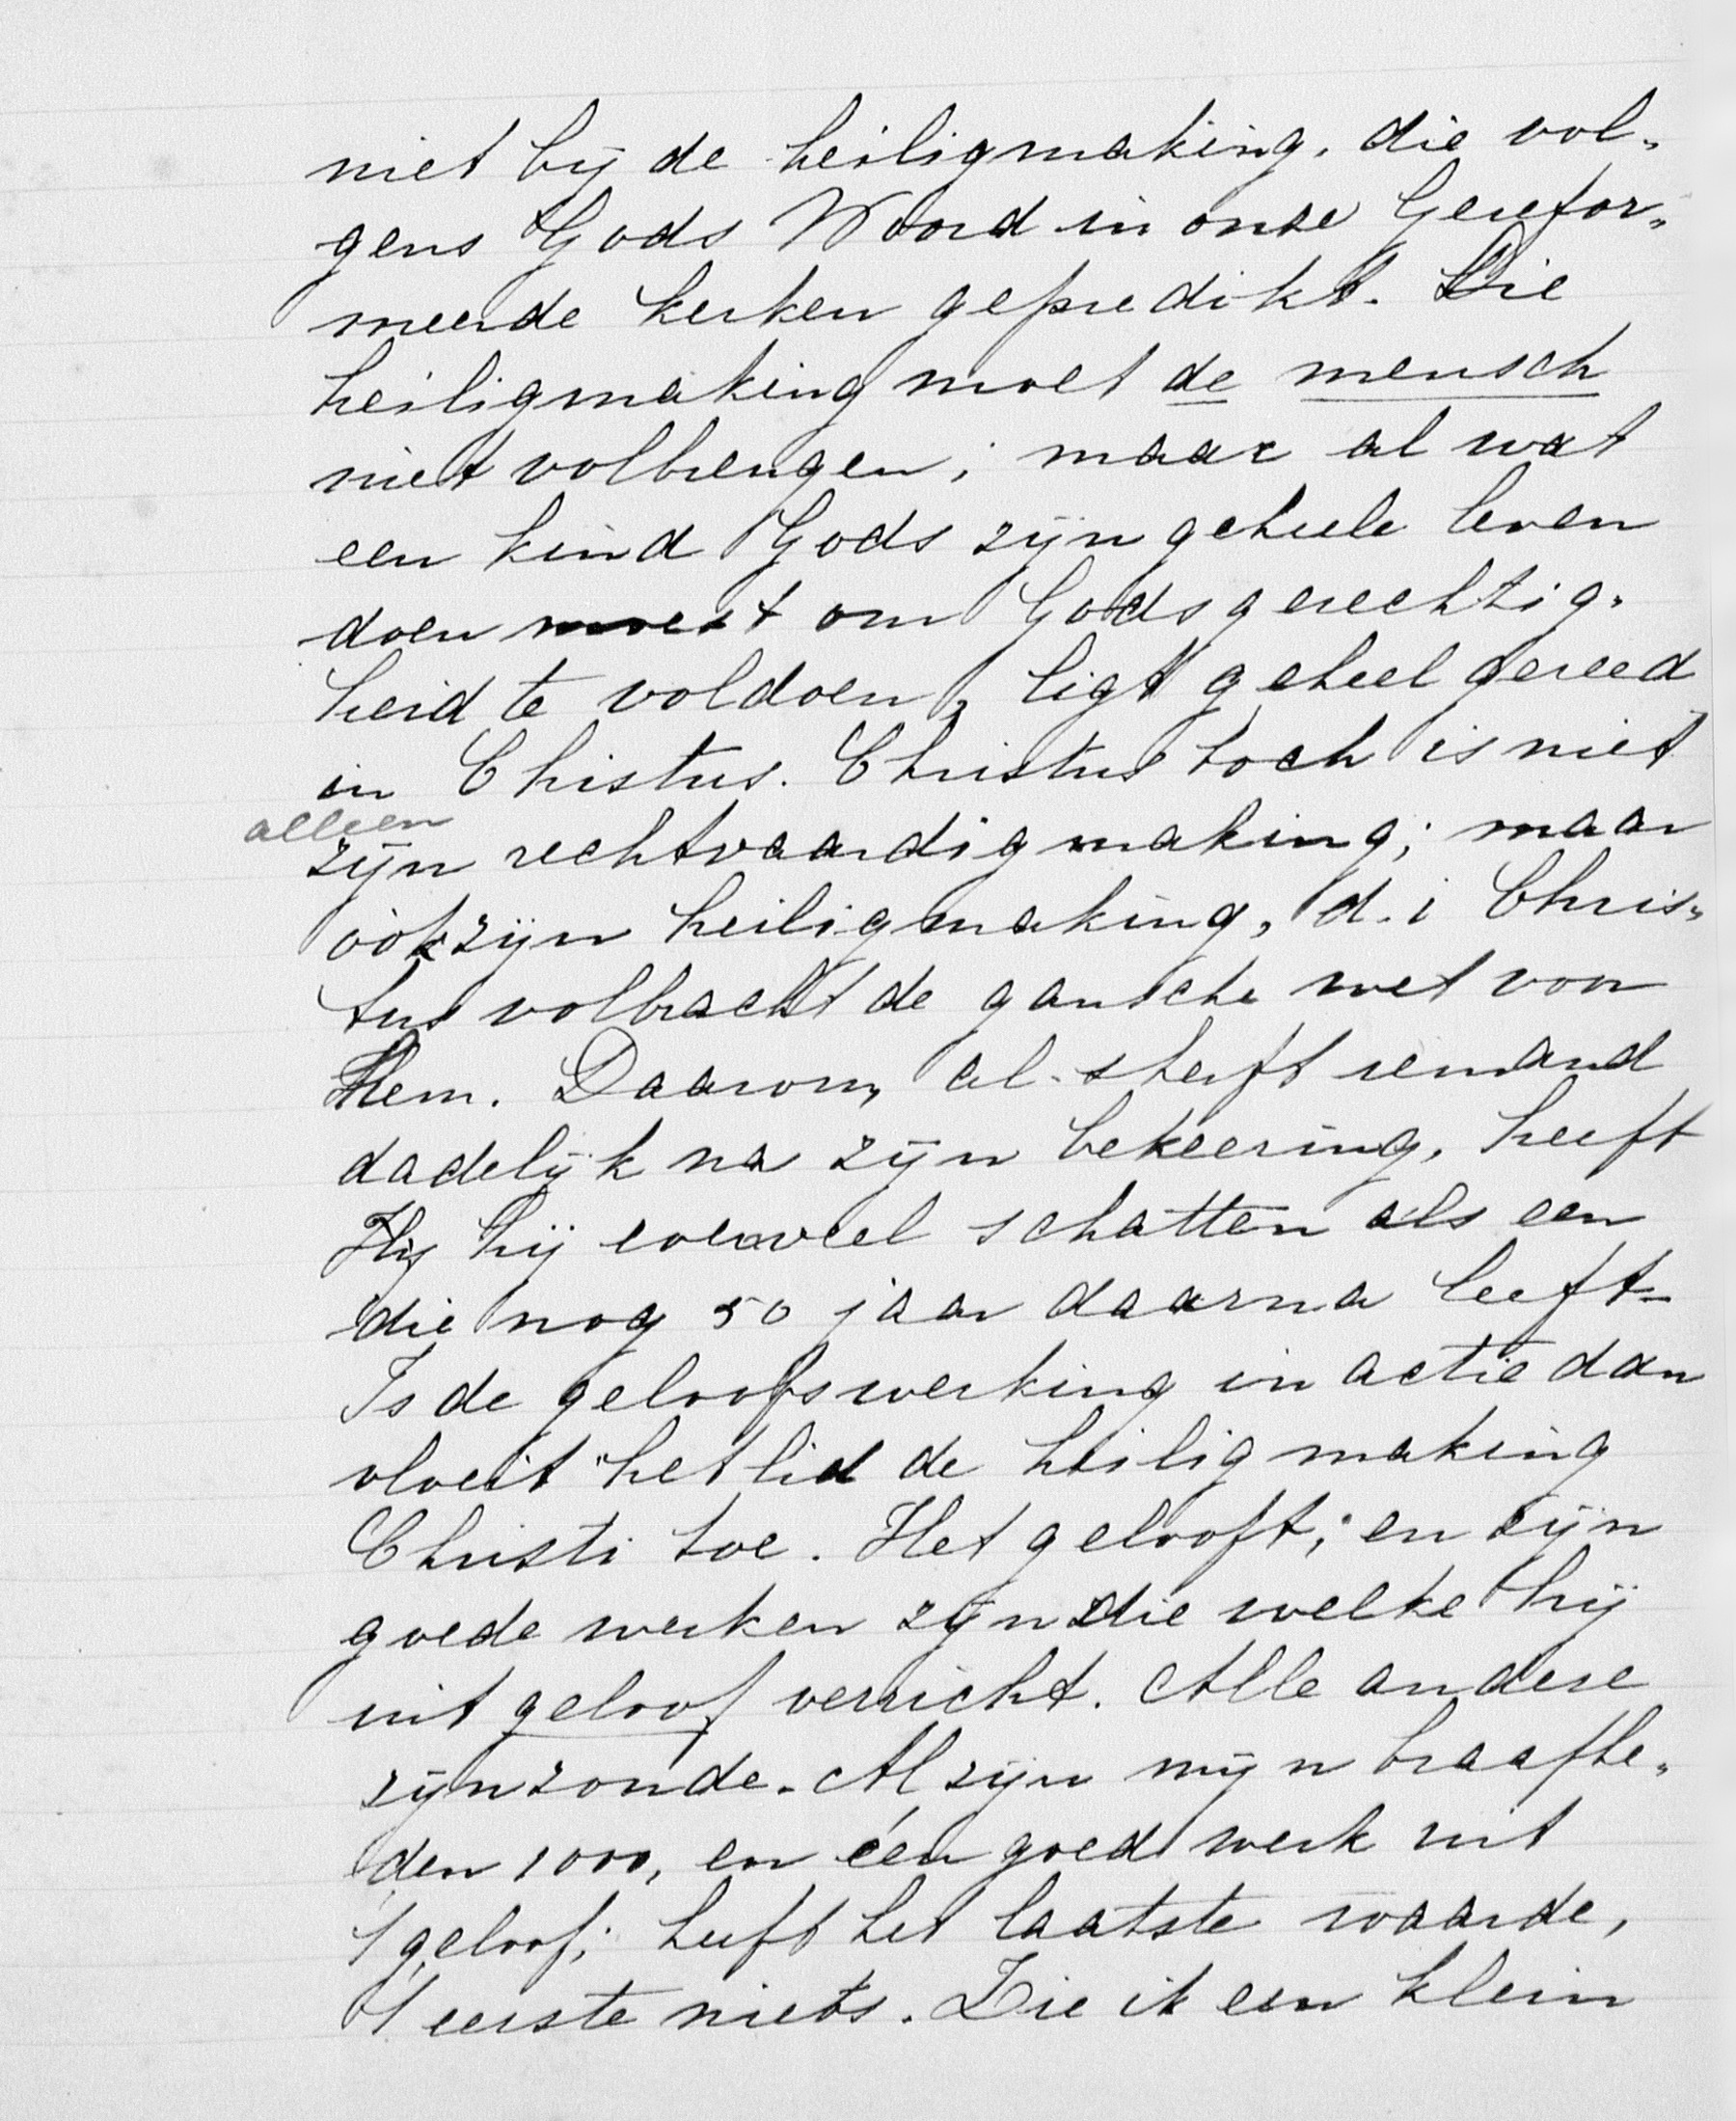 niet bij de heiligmaking, die vol„
gens Gods Woord in onze Gerefor„
meerde kerken gepredikt. Die
heiligmaking moet de mensch
niet volbrengen; maar al wat
een kind Gods zijn geheele leven
doen moest om Gods gerechtig„
heid te voldoen, ligt geheel gereed
in Christus. Christus toch is niet
alleen
zijn rechtvaardigmaking; maar
óók zijn heiligmaking, d.i Chris„
tus volbracht de gansche wet voor
Hem. Daarom, al sterft iemand
dadelijk na zijn bekeering, heeft
Hij hij evenveel schatten als een
die nog 50 jaar daarna leeft.
Is de geloofswerking in actie dan
vloeit het lid de heiligmaking
Christi toe. Het gelooft; en zijn
goede werken zijn die welke hij
uit geloof verricht. Alle andere
zijn zonde. Al zijn mijn braafhe„
den 1000, en één goed werk uit
't geloof; heeft het laatste waarde,
't eerste niets. Zie ik een klein